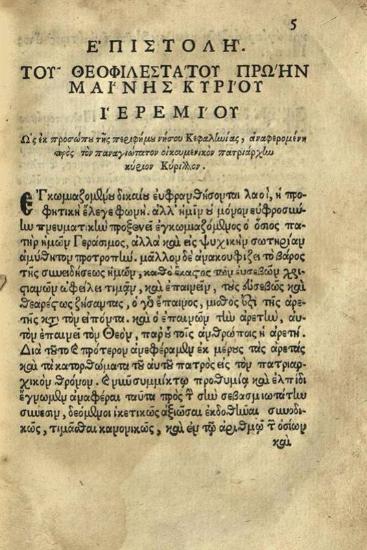 5
ΕΠΙΣΤΟΛΗ.
ΤΟΥ ΘΕΟΦΙΛΕΣΤΑΤΟΥ ΠΡΩΗΝ
ΜΑΙΝΗΣ ΚΥΡΙΟΥ
ΙΕΡΕΜΙΟΥ
Ὡς ἐκ προσώπου τῆς περιφήμου νήσου Κεφαλληνίας, ἀναφερομένη
πρὸς τὸν παναγιώτατον οἰκουμενικὸν πατριάρχην
κύριον Κύριλλον.
ΕΓκωμιαζομένου δικαίου εὐφρανθήσονται λαοὶ, ἡ προ-
φητικὴ ἔλεγε φωνή. ἀλλ' ἡμῖν οὐ μόνον εὐφροσύνην
πνευματικὴν προξενεῖ ἐγκωμιαζόμενος ὁ ὅσιος πα-
τὴρ ἡμῶν Γεράσιμος, ἀλλὰ καὶ εἰς ψυχικὴν σωτηρίαν
ἀμύθητον προτροπὴν. μᾶλλον δὲ ἀνακουφίζει τὸ βάρος
τῆς συνειδήσεως ἡμῶν, καθὸ ἕκαστος τῶν εὐσεβῶν χρι-
στιανῶν ὠφείλει τιμᾶν, καὶ ἐπαινεῖν, τοὺς εὐσεβῶς καὶ
θεαρέστως ζήσαντας, ὁ γὸ ἔπαινος, μισθὸς ὅτι τῆς ἀρε-
τῆς κατ τὸν εἰπόντα. καὶ ὁ ἐπαινῶν τὴν ἀρετὴν, αὐ-
τὸν ἐπαινεῖ τὸν Θεὸν, παρ' οὗ τοῖς ἀνθρώποις ἡ ἀρετή.
Διὰ τοῦτο πρότερον ἀνεφέραμεν ἐκ μέρους τὰς ἀρετὰς
καὶ τὰ κατορθώματα τοῦ αὐτοῦ πατρὸς εἰς τὸν πατρι-
αρχικὸν θρόνον. Ενῷ συμμίκτῳ προθυμίᾳ καὶ ἐλπίδι
ἔγνωμεν ἀναφέραι ταῦτα πρὸς τὴν σὴν σεβασμιωτάτην
σύνεσιν, δεόμενοι ἱκετικῶς ἀξιῶσαι ἐκδοθῆναι συνοδι-
κῶς, τιμᾶσθαι κανονικῶς, καὶ ἐν τῷ ἀριθμῷ τῶν ὁσίων
καὶ